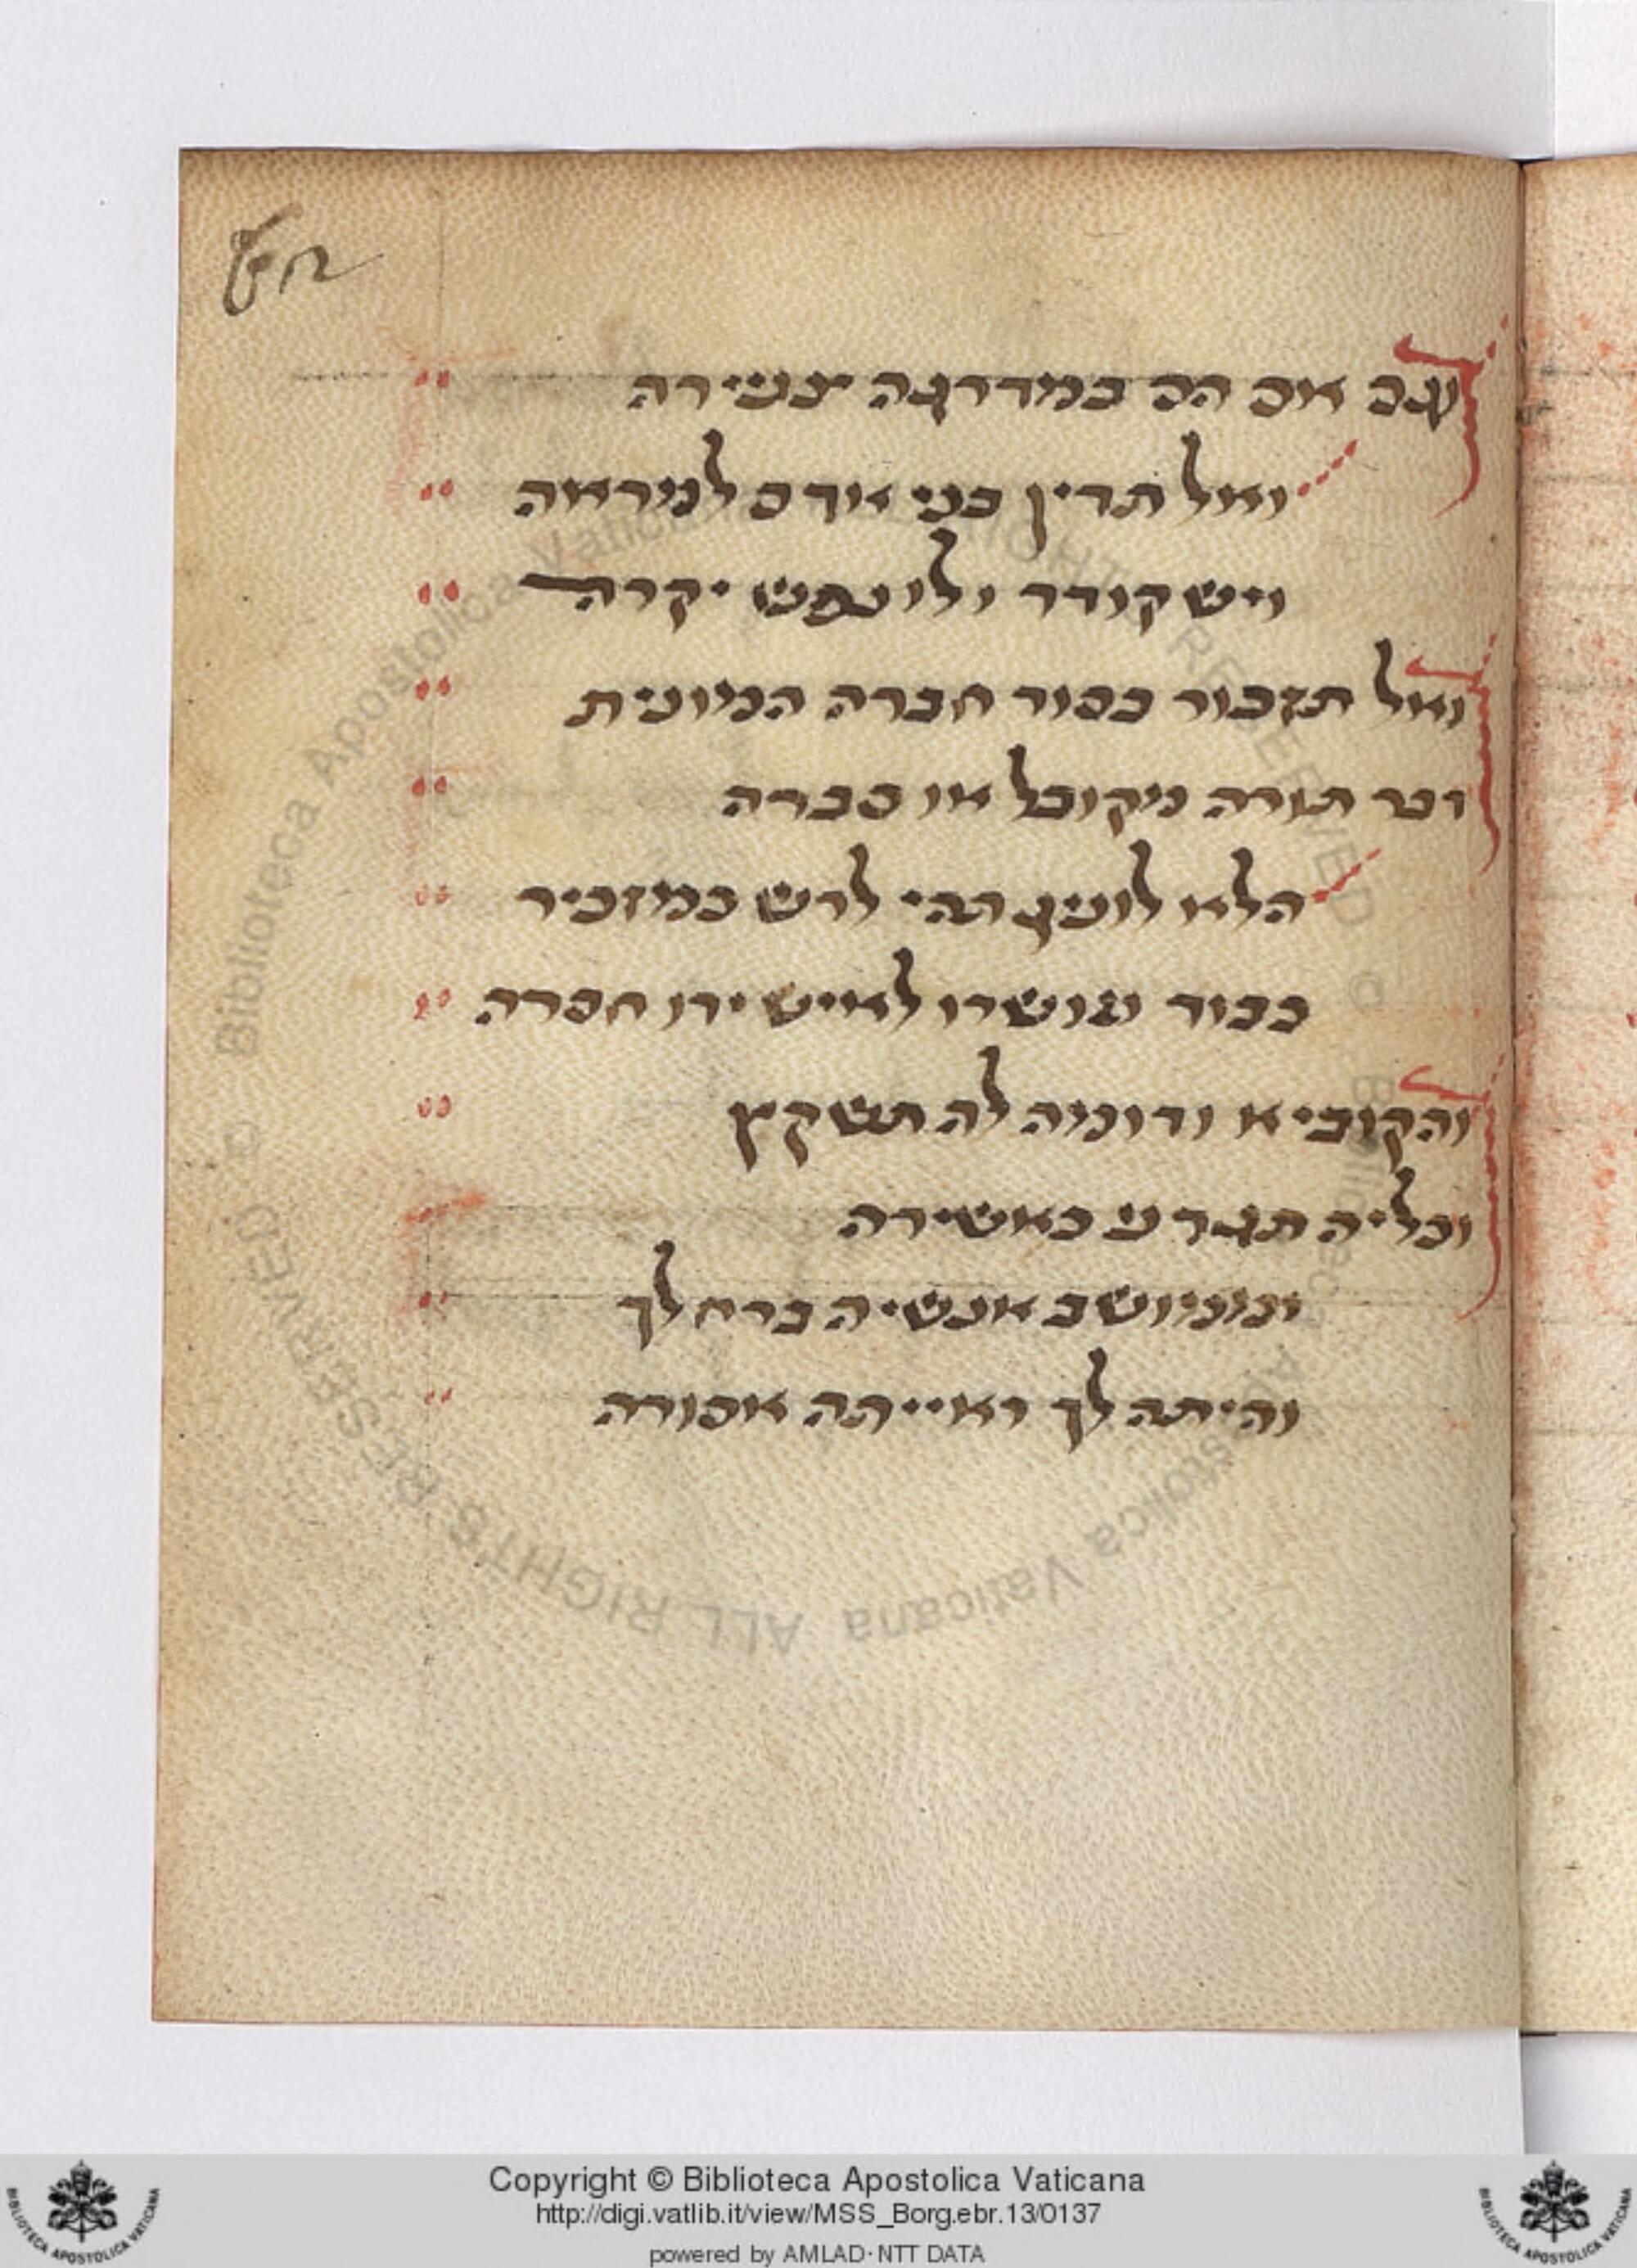 גם אם הם במדרגה צעירה
ואל תדין בני אדם למראה
ויש קודר ולו נפש יקרה
ואל תזכור בפור חברה המונית
דבר תורה מקובל או סברה
הלא לועג תהי לרש במזכיר
כבוד ועושרו לאיש ירו חסרה
והקוביא ודומיה לה תשקץ
וכליה תגדע כאשירה
וממושב אנשיה ברח לך
והיתה לך ראייתה אסורה
Copyright © Biblioteca Apostolica Vaticana
http://digi.vatlib.it/view/MSS_Borg.ebr.13/0137
powered by AMLAD·NTT DATA